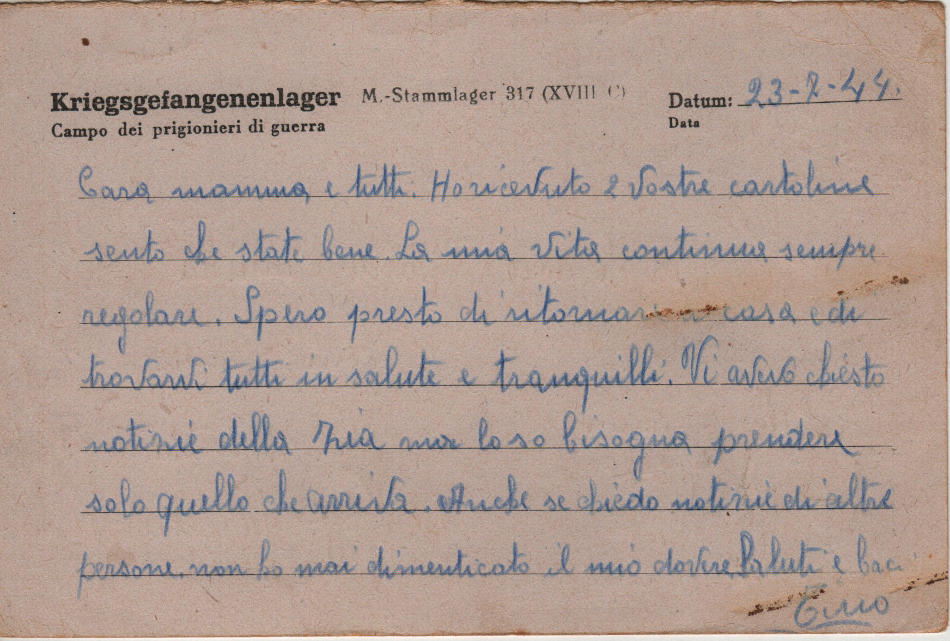 Kriegsgefangenenlager M.-Stammlager 317 (XVIII C) Datum: 23-7-44.
Campo dei prigionieri di guerra Data
Cara mamma, e tutti. Ho ricevuto 2 vostre cartoline
sento che state bene. La mia vita continua sempre
regolare. Spero presto di ritornare a casa e di
trovarvi tutti in salute e tranquilli. Vi avevo chiesto
notizie della Zia ma lo so bisogna prendere
solo quello che arriva. Anche se chiedo notizie di altre
persone, non ho mai dimenticato il mio dovere. Saluti e baci